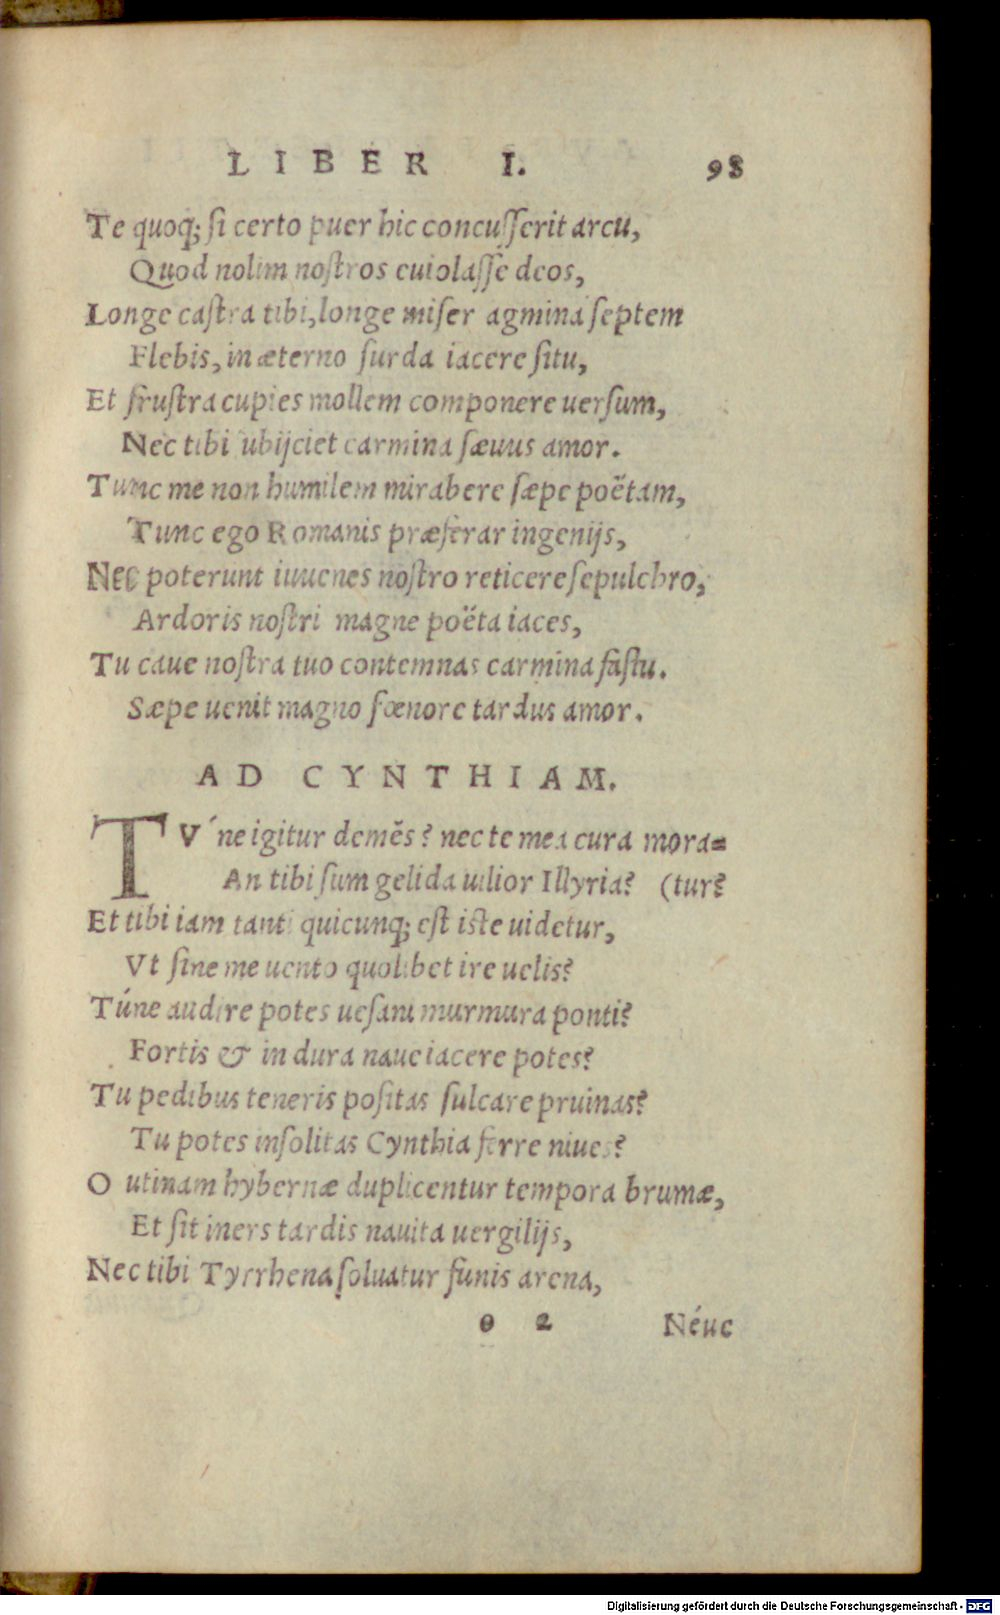 LIBER I. 98
Te quoq; ſi certo puer hic concuſſerit arcu,
Quod nolim noſtros euiolaſſe deos,
Longe caſtra tibi, longe miſer agmina ſeptem
Flebis, in æterno ſurda iacere ſitu,
Et fruſtra cupies mollem componere uerſum,
Nec tibi ubijciet carmina ſæuus amor.
Tunc me non humilem mirabere ſæpe poëtam,
Tunc ego Romanis præferar ingenijs,
Nec poterunt iuuenes noſtro reticere ſepulchro,
Ardoris noſtri magne poëta iaces,
Tu caue noſtra tuo contemnas carmina faſtu.
Sæpe uenit magno fœnore tardus amor.
AD CYNTHIAM.
TV´ne igitur demẽs? nec te mea cura mora=
An tibi ſum gelida uilior Illyria? (tur?
Et tibi iam tanti quicunq; eſt iſte uidetur,
Vt ſine me uento quolibet ire uelis?
Túne audire potes ueſani murmura ponti?
Fortis & in dura naue iacere potes?
Tu pedibus teneris poſitas ſulcare pruinas?
Tu potes inſolitas Cynthia ferre niues?
O utinam hybernæ duplicentur tempora brumæ,
Et ſit iners tardis nauita uergilijs,
Nec tibi Tyrrhena ſoluatur funis arena,
o 2 Néue
Digitalisierung gefördert durch die Deutsche Forschungsgemeinschaft - DFG